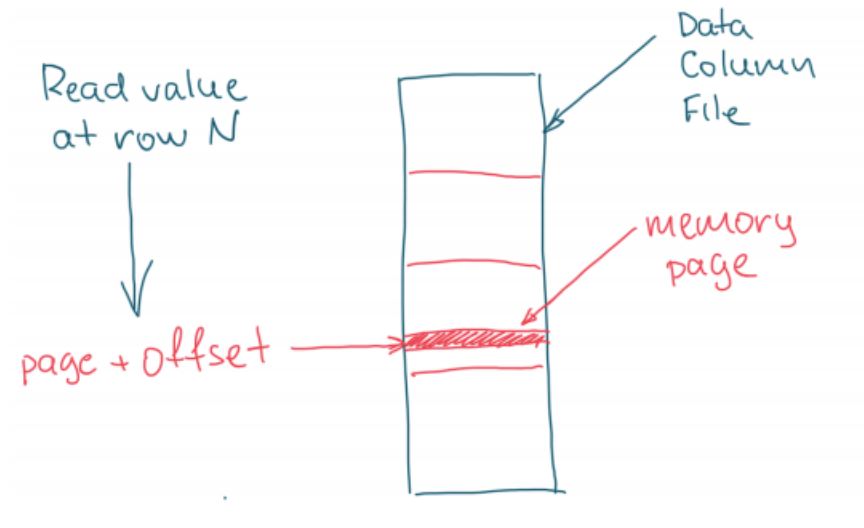 Read value
at row N
page + offset
Data
Column
File
memory
page